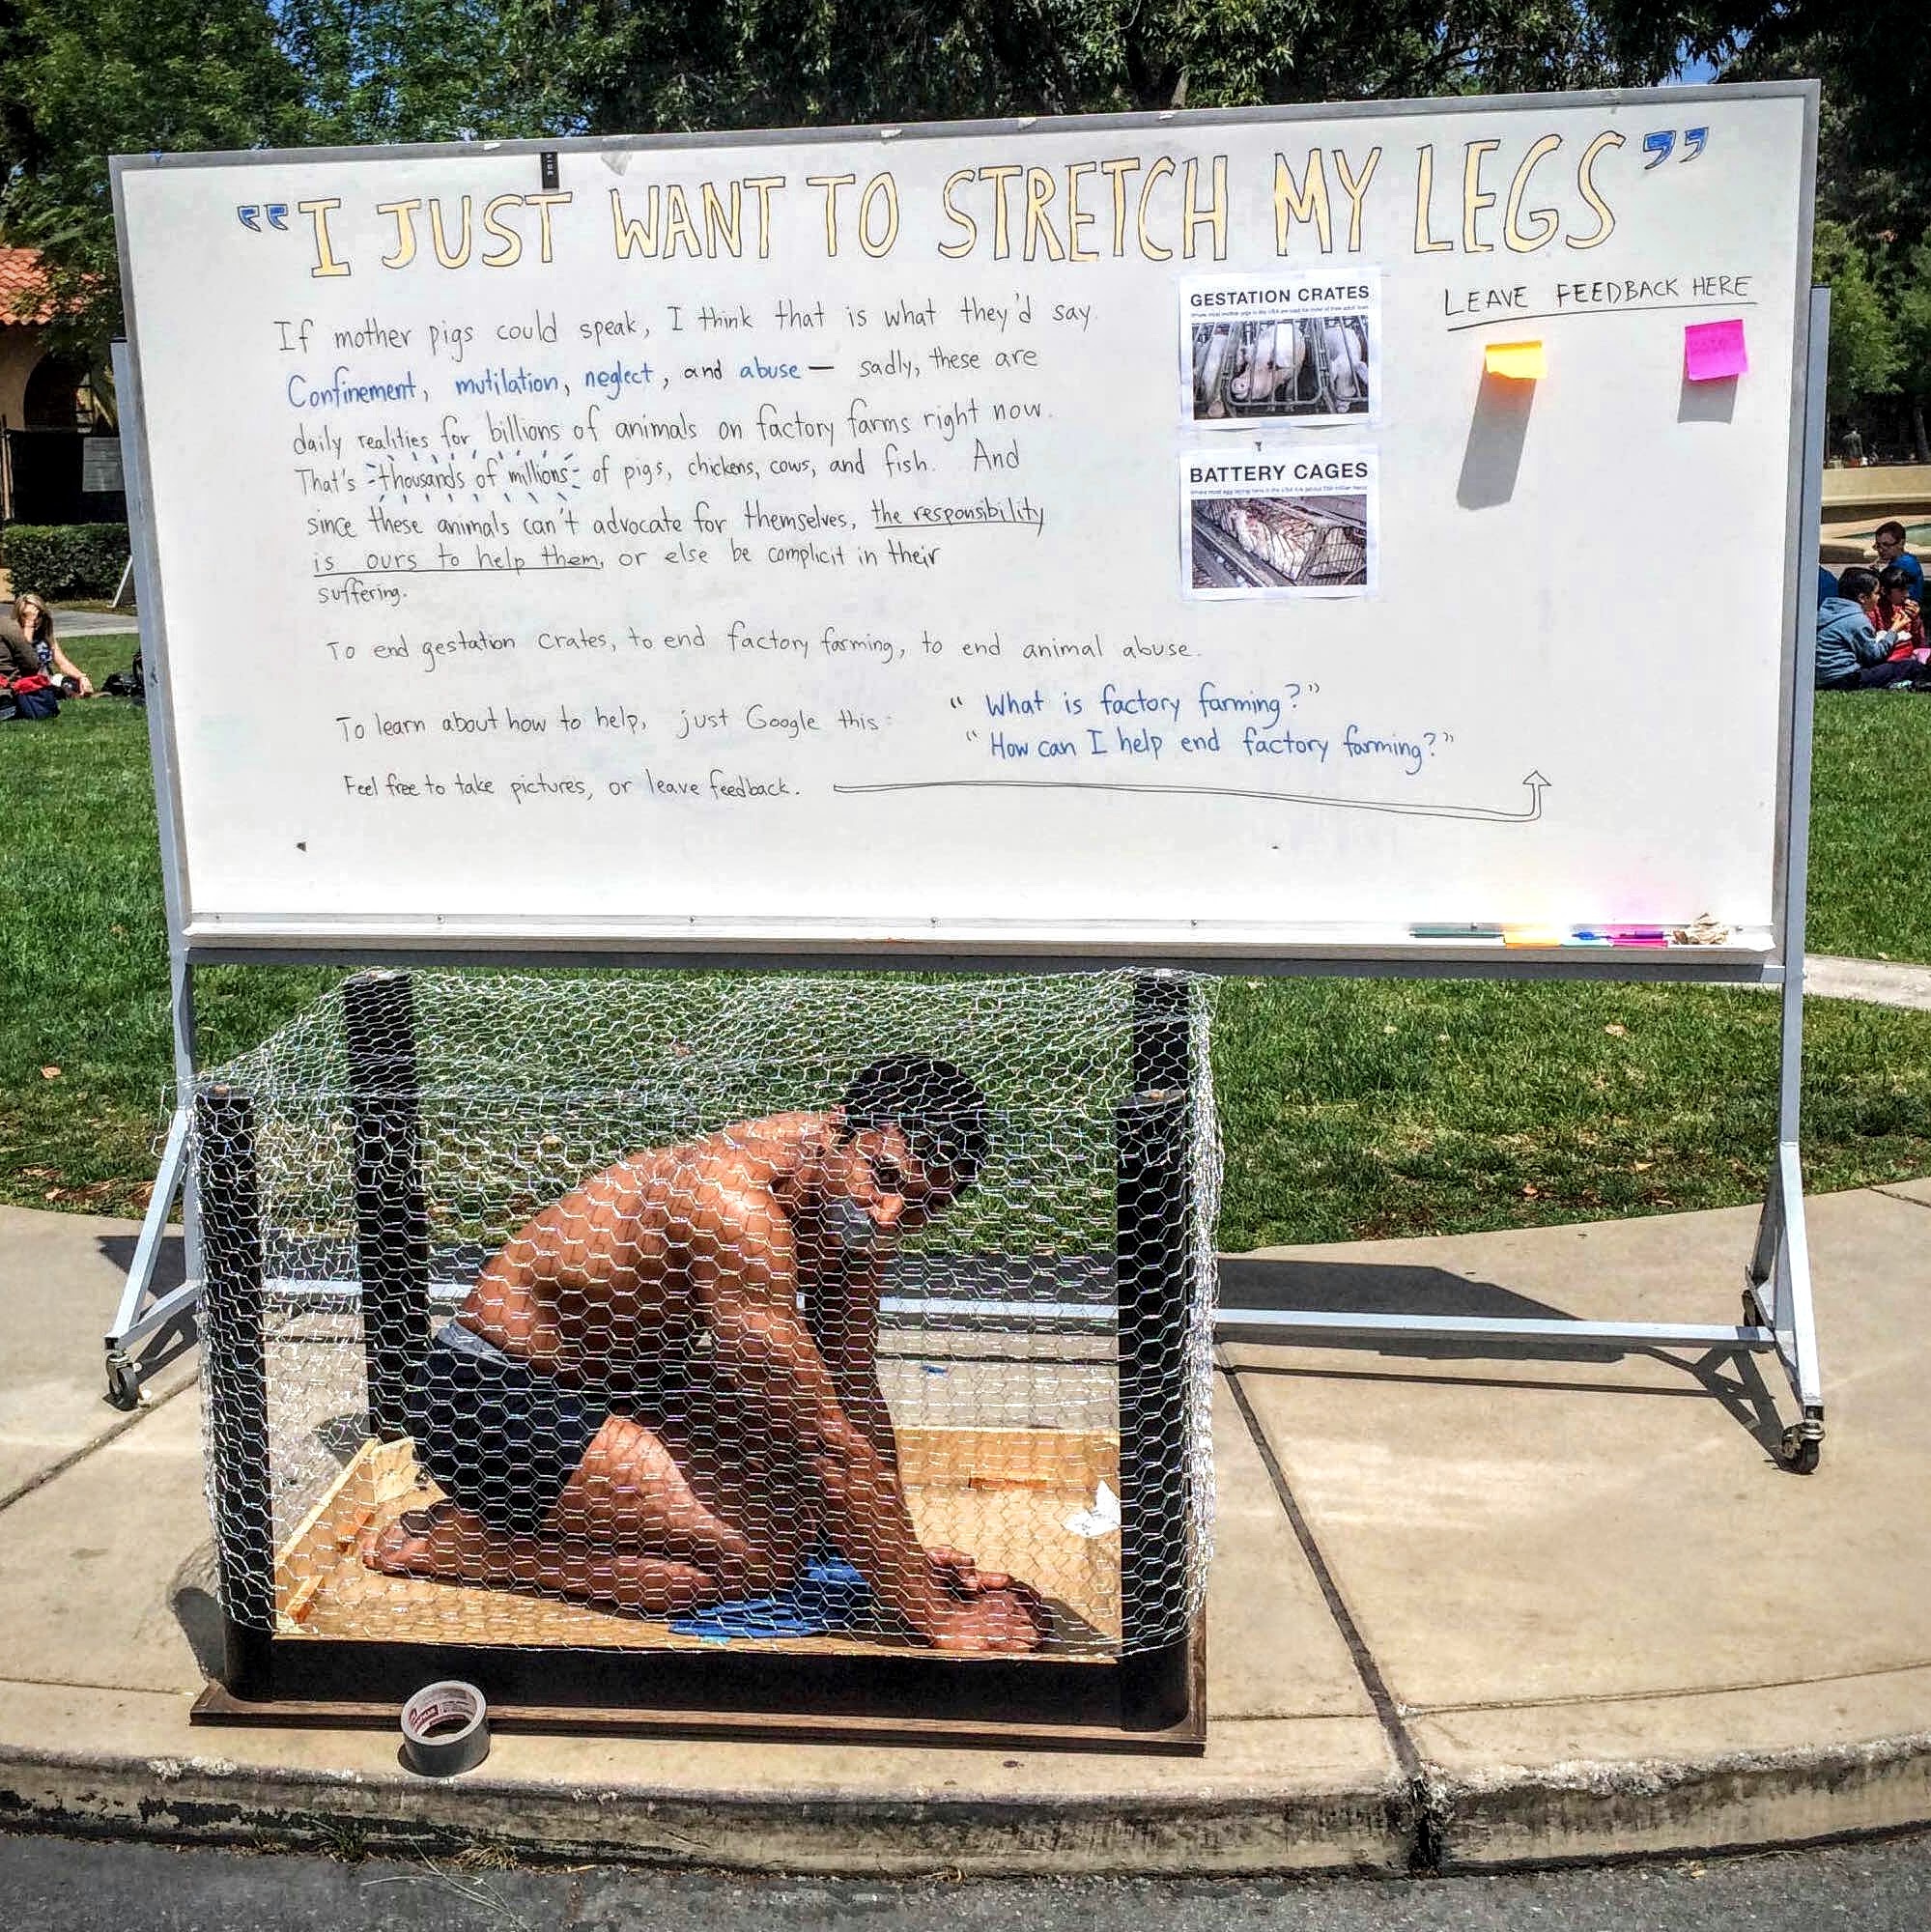 “I JUST WANT TO STRETCH MY LEGS”
If mother pigs could speak, I think that is what they'd say.
Confinement, mutilation, neglect, and abuse — sadly, these are
daily realities for billions of animals on factory farms right now.
That's thousands of millions of pigs, chickens, cows, and fish. And
since these animals can't advocate for themselves, the responsibility
is ours to help them, or else be complicit in their
suffering.
To end gestation crates, to end factory farming, to end animal abuse.
To learn about how to help, just Google this:
“What is factory farming?”
“How can I help end factory farming?”
Feel free to take pictures, or leave feedback.
GESTATION CRATES
BATTERY CAGES
LEAVE FEEDBACK HERE